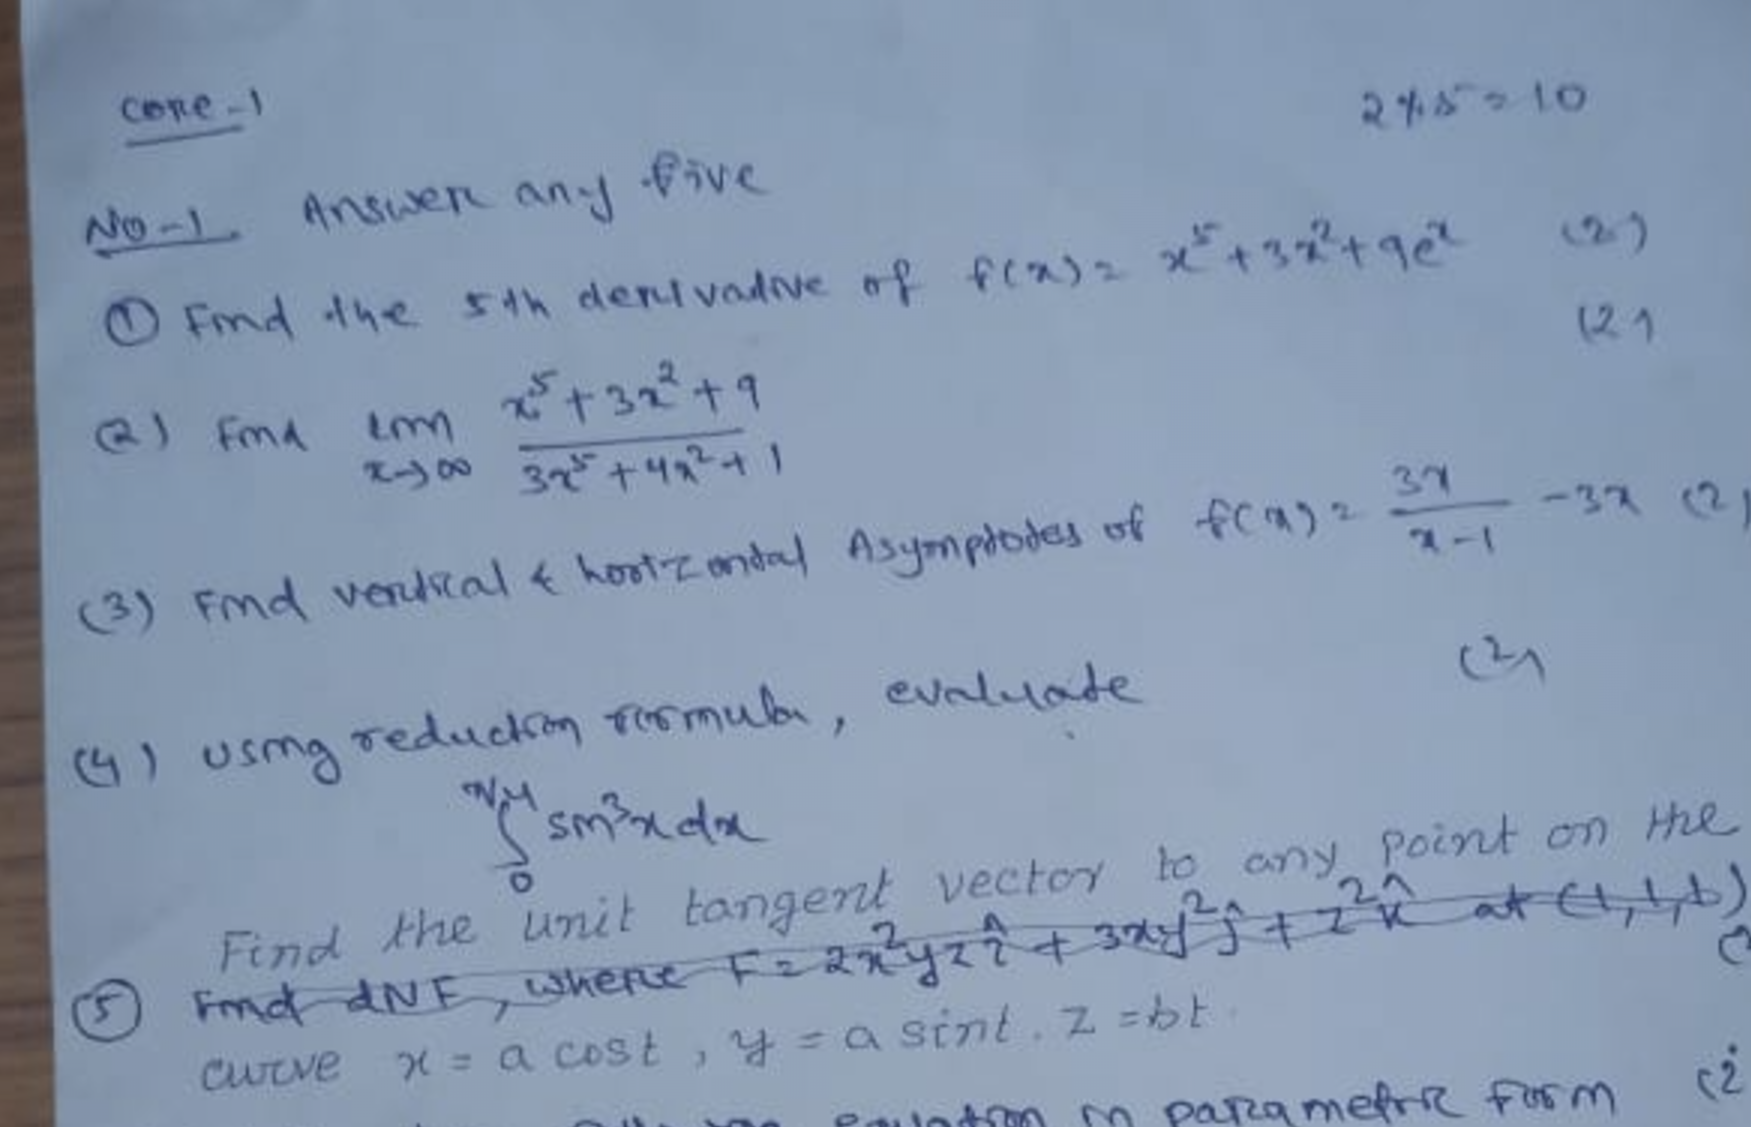 Core-1
2×5=10
No-1. Answer any five
① Find the 5th derivative of f(x) = x⁵+3x²+9eˣ (2)
(2)
(2) Find lim x→∞ x⁵+3x²+9 / 3x⁵+4x²+1
(3) Find vertical & horizontal Asymptotes of f(x) = 3x / x-1 -3x (2)
(2)
(4) using reduction formula, evaluate
∫₀^π/4 sin³x dx
Find the unit tangent vector to any point on the
⑤ Find div F, where F = 2x²yz î + 3xy² ĵ + z² k̂ at (1,1,1)
curve x = a cost, y = a sint. z = bt.
equation in parametric form (2